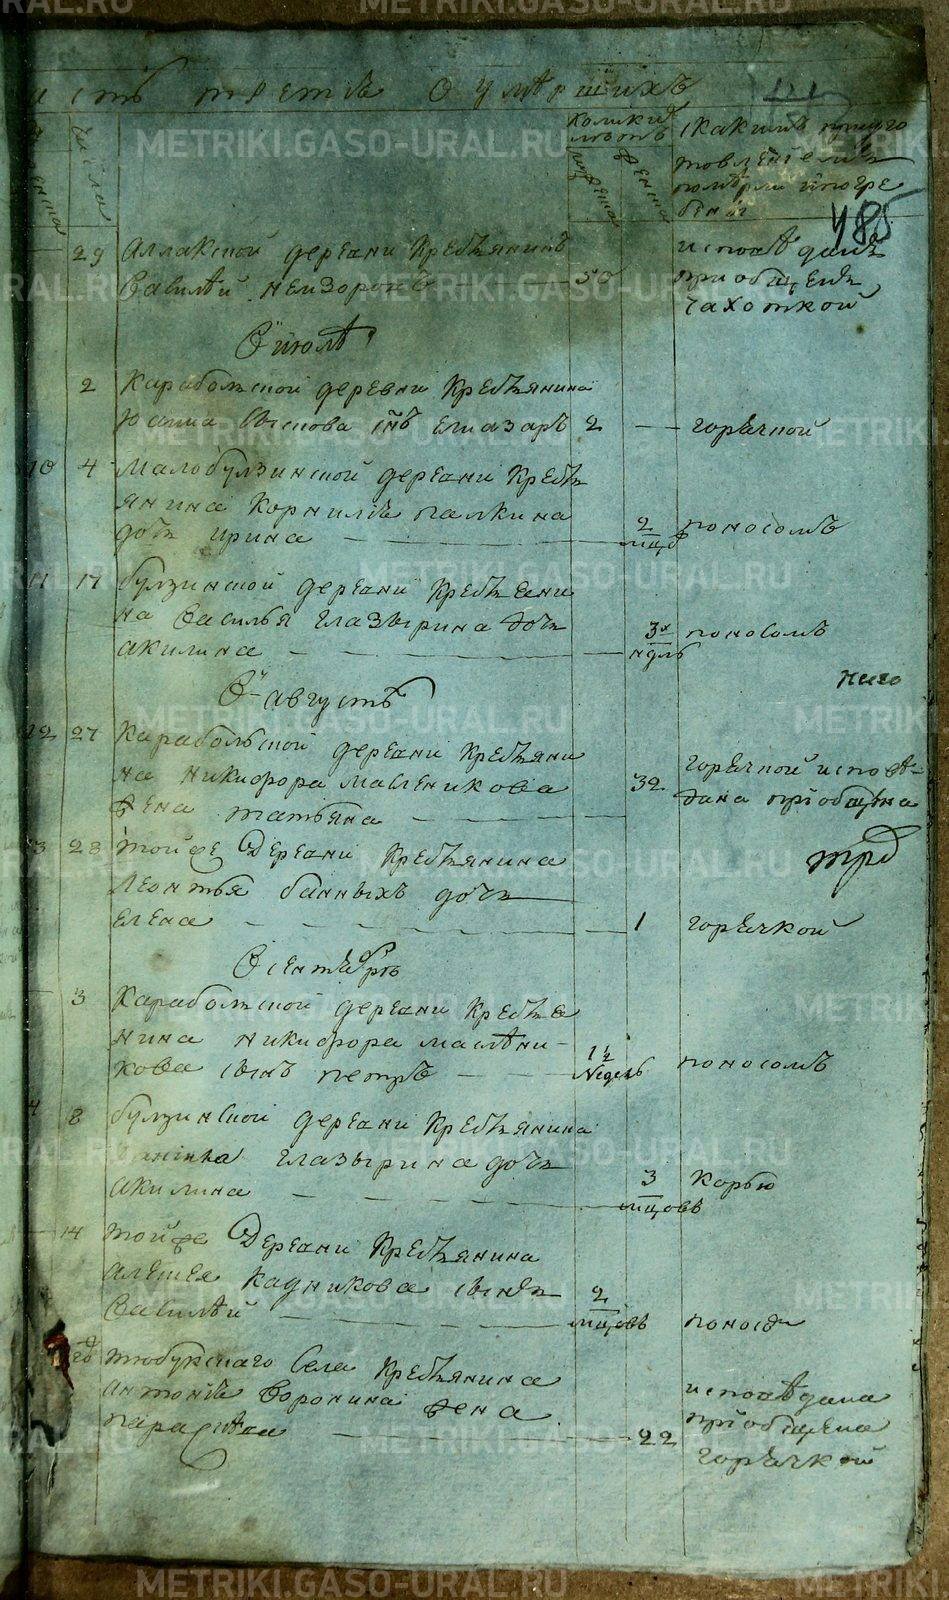 часть третья о умершихъ
числа
Коликихъ лѣтъ
мужеска
женска
съ какимъ приуго
товленіемъ
померли и погре
бены
485
29 Аллакской деревни крестьянинъ
Василей Незоровъ 50
исповѣданъ
приобщенъ
чахоткой
В июлѣ
2 Карабольской деревни крестьянина
сынъ елиазаръ 2 горячкой
10 4 Малобулзинской деревни кресть
янина Корнилья палкина
дочь ирина 2 мцов поносомъ
11 17 булзинской деревни крестьяни
на Василья глазырина дочь
акилина 3х ндль поносомъ
В августѣ
12 27 Карабольской деревни крестьяни
на никифора масленикова
жена татьяна 32
горячкой исповѣ
дана приобщена
13 28 тойже Деревни крестьянина
леонтья банныхъ дочь
елена 1 горячкой
В сентябрѣ
3 Карабольской деревни крестья
нина никифора маслѣни
кова сынъ петръ 1½ Недель поносомъ
8 булзинской деревни крестьянина
глазырина дочь
акилина 3 мцовъ корью
14 тойже Деревни крестьянина
алексея кадникова сынъ
Василей 2 мцовъ поносо
тюбукскаго села крестьянина
антонья Воронина жена
парасковья 22
исповѣдана
приобщена
горячкой
METRIKI.GASO-URAL.RU